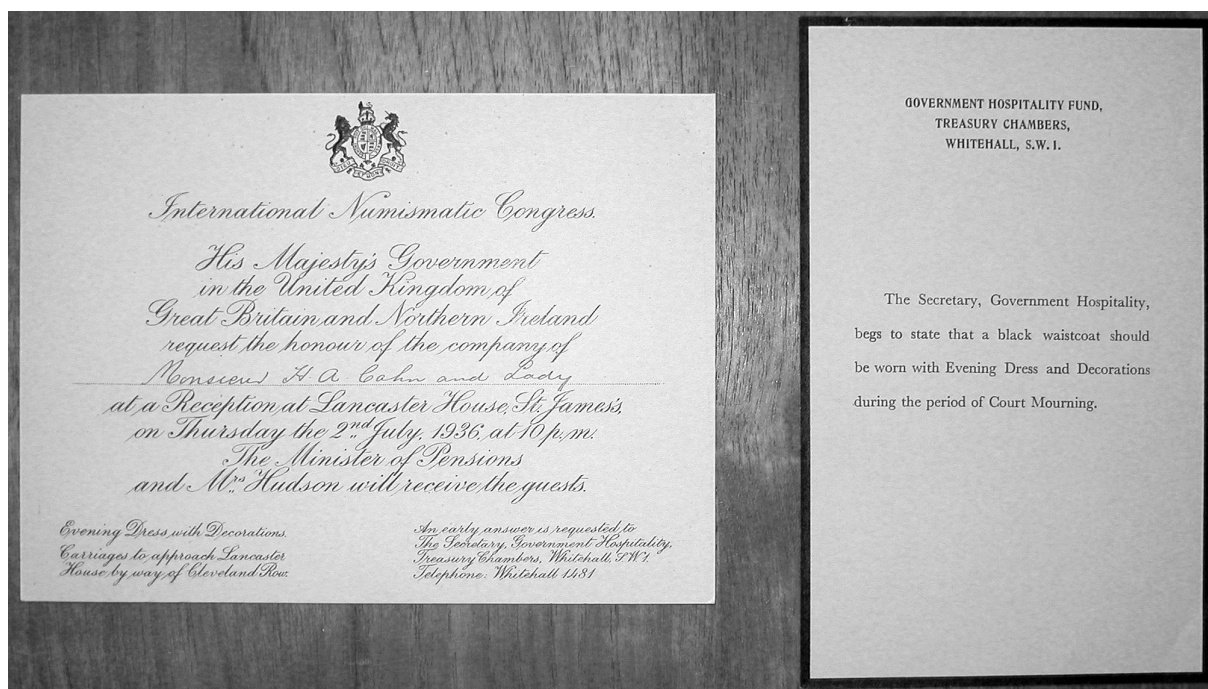 International Numismatic Congress.
His Majesty's Government
in the United Kingdom of
Great Britain and Northern Ireland
request the honour of the company of
Monsieur H. A. Cahn and Lady
at a Reception at Lancaster House, St. James's,
on Thursday the 2nd July, 1936, at 10 p.m.
The Minister of Pensions
and Mrs Hudson will receive the guests.
Evening Dress with Decorations.
Carriages to approach Lancaster
House by way of Cleveland Row.
An early answer is requested to
The Secretary, Government Hospitality,
Treasury Chambers, Whitehall, S.W.1.
Telephone: Whitehall 1481
GOVERNMENT HOSPITALITY FUND,
TREASURY CHAMBERS,
WHITEHALL, S.W. 1.
The Secretary, Government Hospitality,
begs to state that a black waistcoat should
be worn with Evening Dress and Decorations
during the period of Court Mourning.